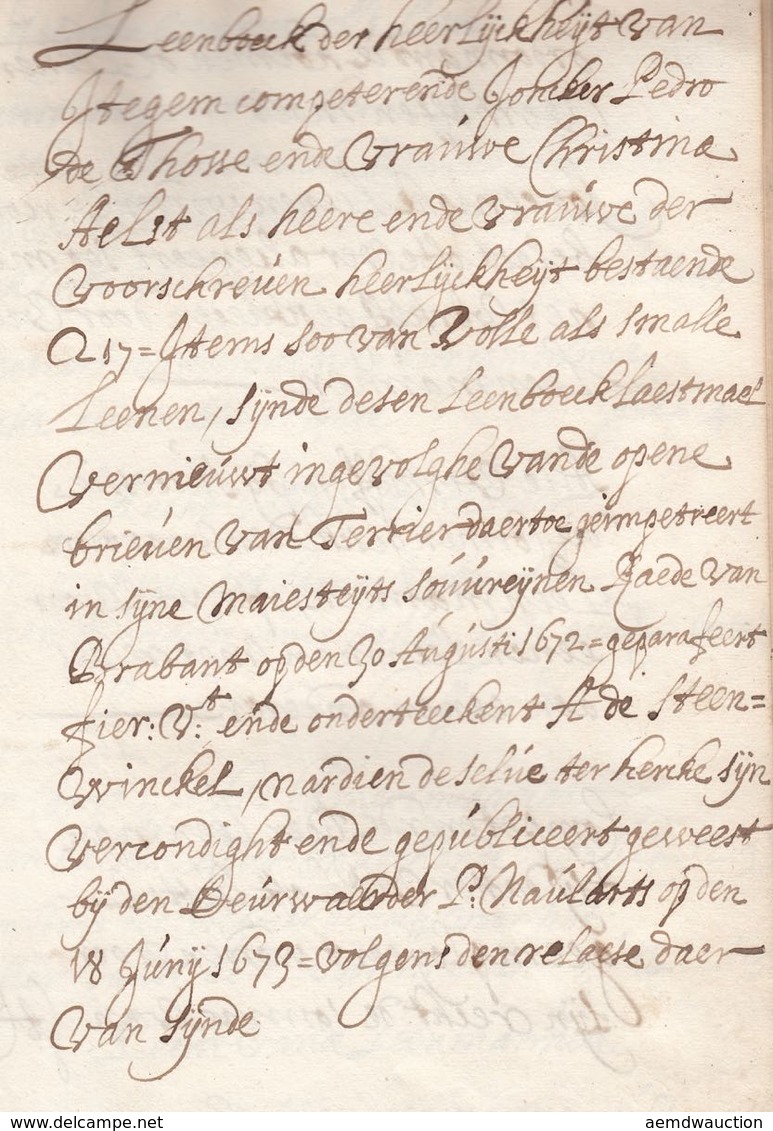 Leenboeck der heerlijckheijt van
Itegem competerende Joncker Pedro
de Thosse ende Vrauwe Christina
Aelst als heere ende vrauwe der
voorschreven heerlijckheijt bestaende
217 = Items soo van volle als smalle
Leenen, sijnde desen Leenboeck laestmael
vernieuwt ingevolghe vande opene
brieven van Terrier daertoe geimpetreert
in sijne Maiesteyts souvreijnen Raede van
Brabant op den 30 Augusti 1672 = geparafeert
fier: v:t ende onderteeckent A de Steen=
winckel, nardien de selve ter kercke sijn
vercondight ende gepubliceert geweest
bij den Deurwaerder P: Naulaerts op den
18 Junij 1673 = volgens den relaese daer
van sijnde
www.delcampe.net
aemdwauction